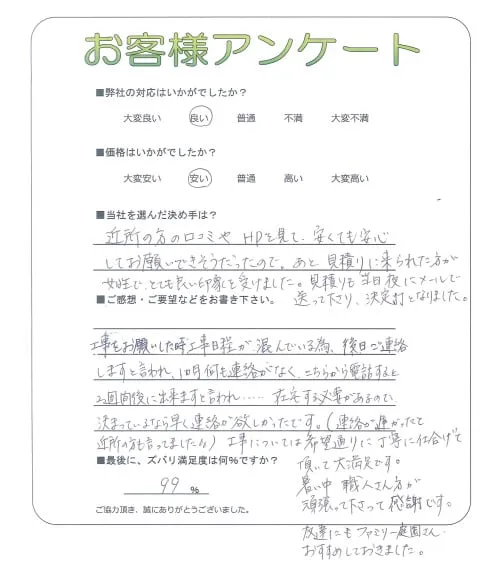 お客様アンケート
■弊社の対応はいかがでしたか？
大変良い 良い 普通 不満 大変不満
■価格はいかがでしたか？
大変安い 安い 普通 高い 大変高い
■当社を選んだ決め手は？
近所の方の口コミや HPを見て、安くても安心
してお願いできそうだったので。あと 見積りに来られた方が
女性で、とても良い印象を受けました。見積りも当日夜にメールで
送って下さり、決定打となりました。
■ご感想・ご要望などをお書き下さい。
工事をお願いした時工事日程が混んでいる為、後日ご連絡
しますと言われ、10日何も連絡がなく、こちらから電話すると
2週間後に出来ますと言われ…… 在宅する必要があるので
決まっているなら早く連絡が欲しかったです。（連絡が遅かったと
近所の方も言ってました）工事については希望通りに丁寧に仕上げて
頂いて大満足です。
暑い中 職人さん方が
頑張って下さって感謝です。
友達にもファミリー庭園さん
おすすめしておきました。
■最後に、ズバリ満足度は何％ですか？
99 ％
ご協力頂き、誠にありがとうございました。